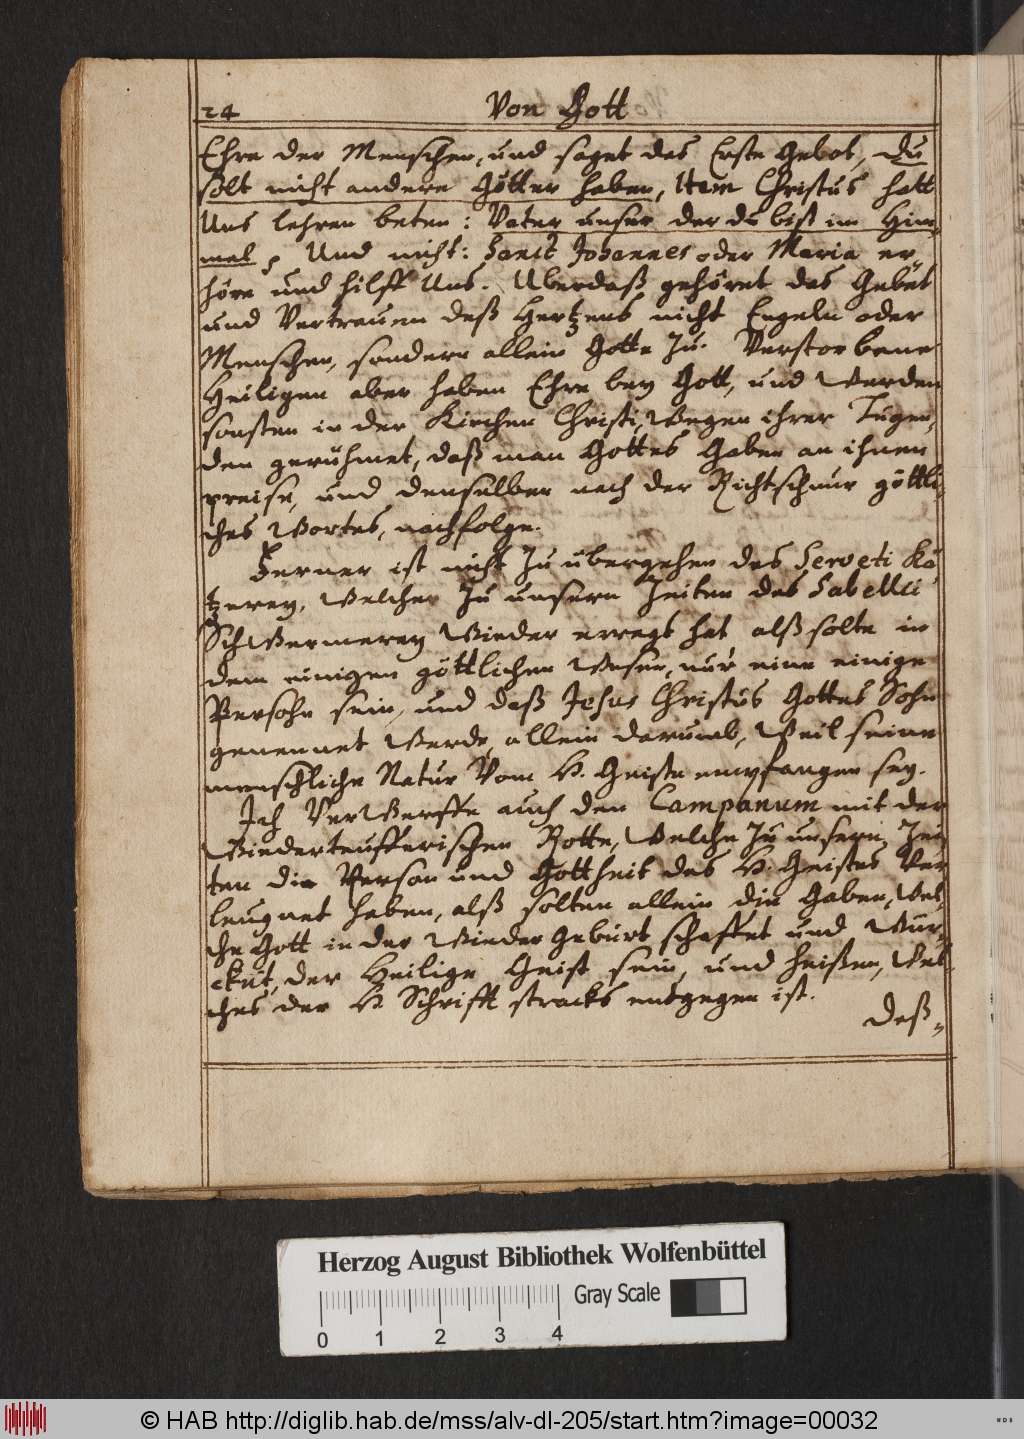 24 Von Gott
Ehre der Menschen, und saget das Erste Gebot, Du
solt nicht andere Götter haben, Item Christus hatt
Uns lehren beten: Vater unser der du bist im Him,
mel, Und nicht: Sanct Johannes oder Maria er,
höre und hilff Uns. Uberdaß gehöret das Gebet
und Vertrauen deß Hertzens nicht Engeln oder
Menschen, sondern allein Gotte zu. Verstorbene
Heiligen aber haben Ehre bey Gott, und Werden
sonsten in der Kirchen Christi, Wegen ihrer Tugen,
den gerühmet, daß man Gottes Gaben an ihnen
preise, und denselben nach der Richtschnur göttli,
ches Wortes, nachfolge.
Ferner ist nicht zu übergehen des Serveti Kä,
tzerey, Welcher zu unsern Zeiten des Sabellii
SchWermerey Wieder erregt hat alß solte in
dem einigen göttlichen Wesen, nur eine einige
Persohn sein, und daß Jesus Christus Gottes Sohn
genennet Werde, allein darumb, Weil seine
menschliche Natur Vom H. Geiste empfangen sey.
Ich VerWerffe auch den Campanum mit der
Wiederteufferischen Rotte, Welche zu unsern Zei,
ten die Person und Gottheit des H. Geistes Ver
leugnet haben, alß solten allein die Gaben, Wel,
che Gott in der Wieder Geburt schaffet und Wür,
cket, der Heilige Geist sein, und heißen, Wel
ches der H Schrifft stracks entgegen ist.
Deß,
Herzog August Bibliothek Wolfenbüttel
Gray Scale
0 1 2 3 4
© HAB http://diglib.hab.de/mss/alv-dl-205/start.htm?image=00032